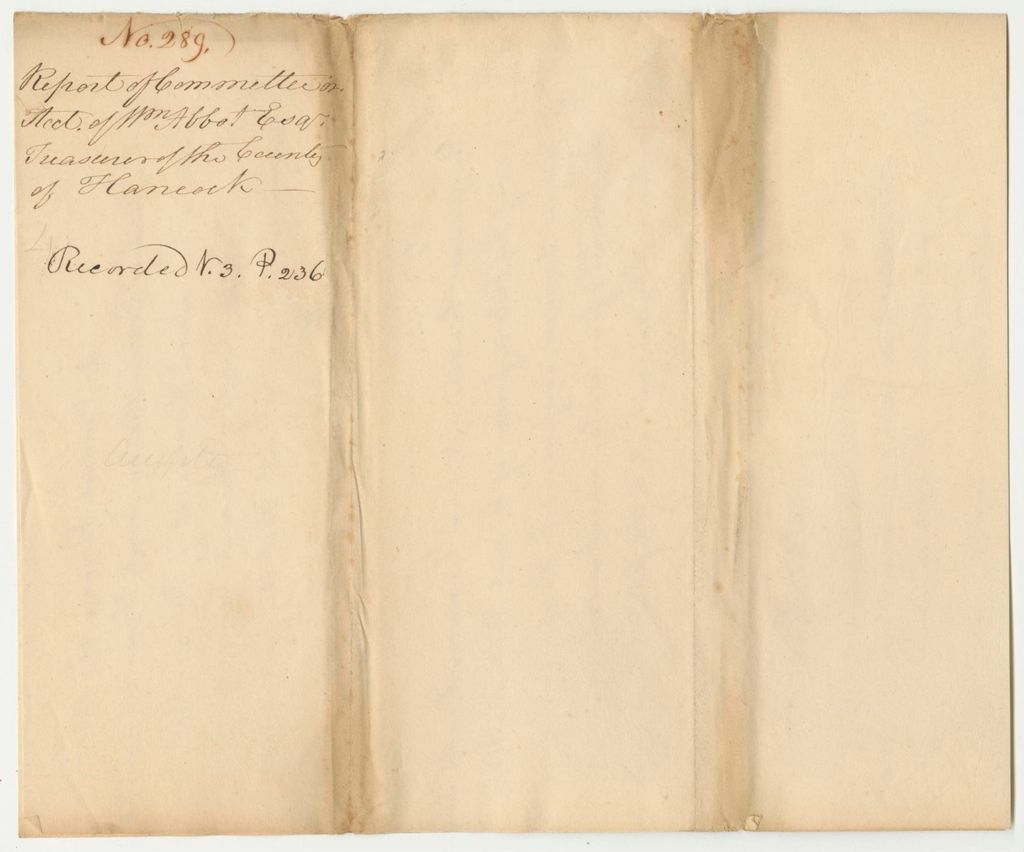 No. 289.
Report of Committee on
Acct. of Wm Abbot Esqr.
Treasurer of the County
of Hancock
Recorded V. 3. P. 236